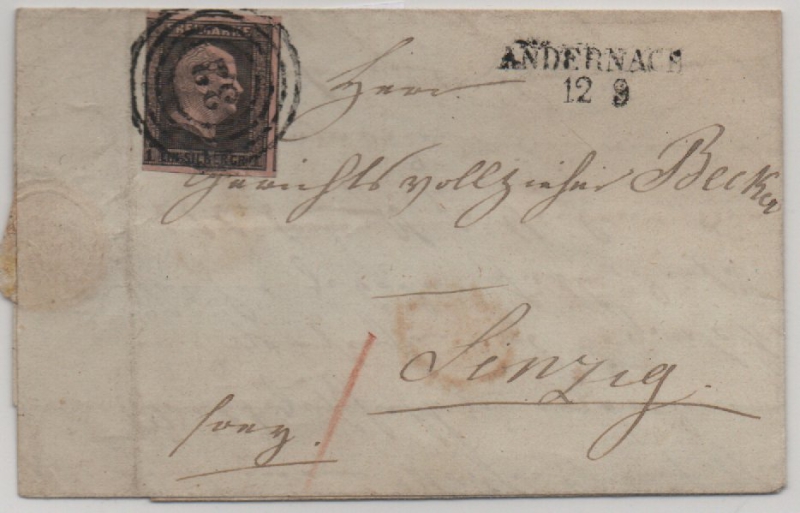 FREIMARKE
33
1 EIN SILBERGR. 1
ANDERNACH
12 9
Herrn
Gerichtsvollzieher Becker
Sinzig.